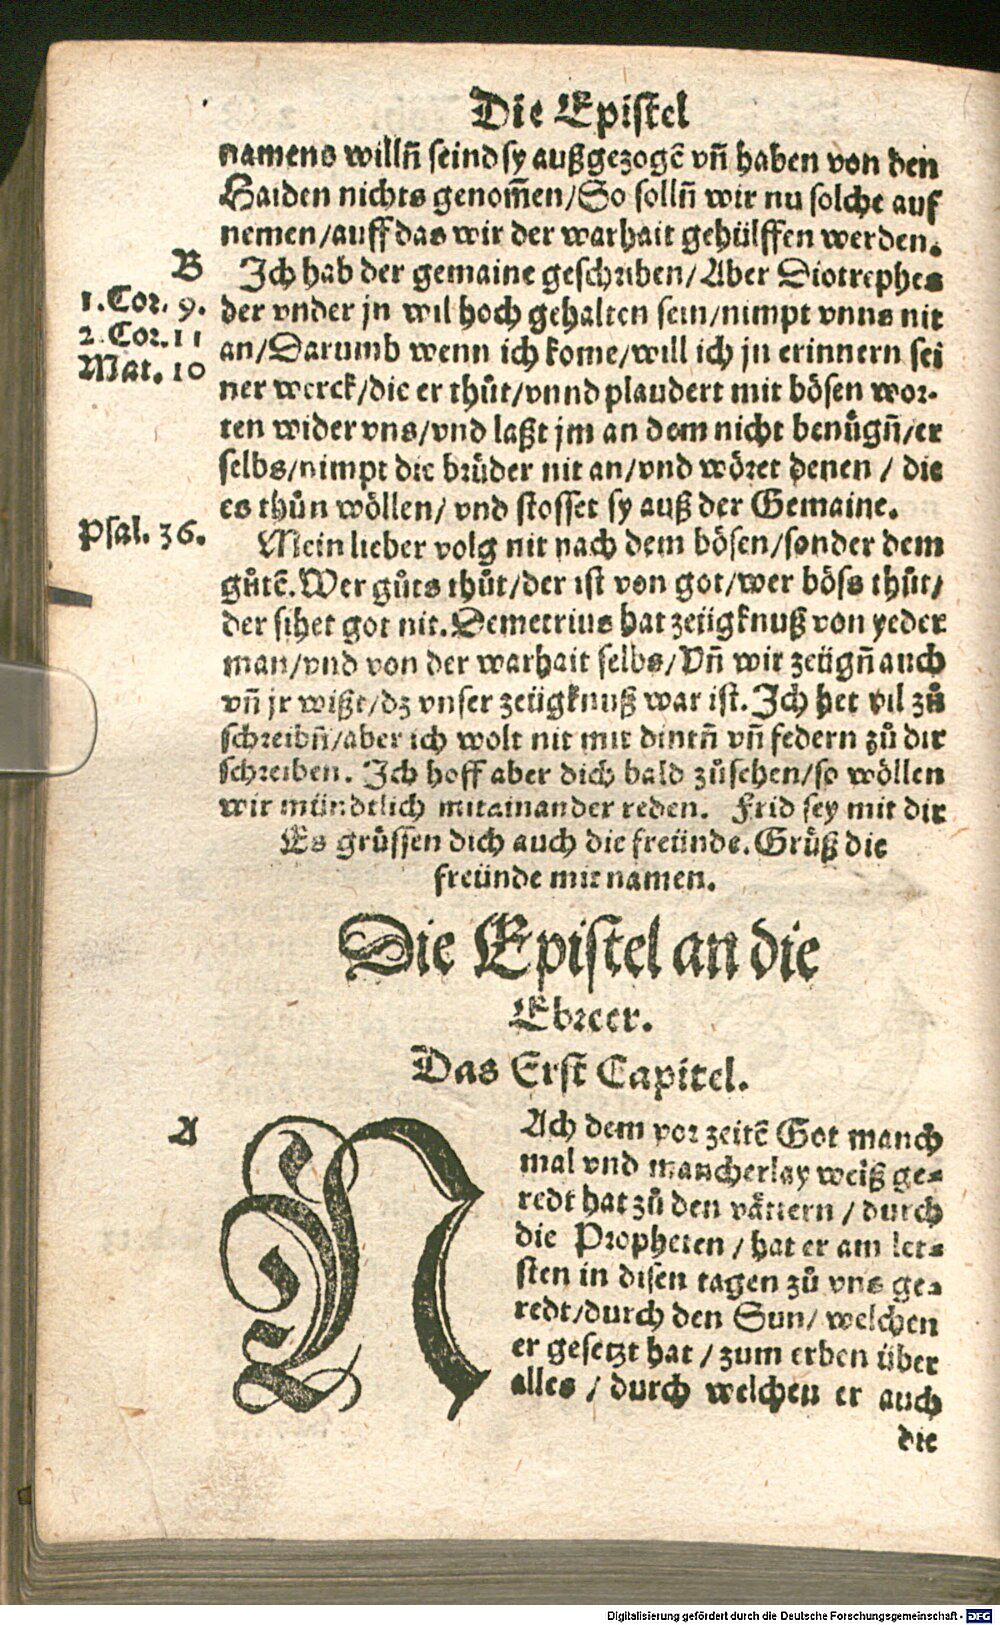 Die Epistel
namens willn̄ seind sy außgezogē vn̄ haben von den
Haiden nichts genom̄en/So solln̄ wir nu solche auf
nemen/auff das wir der warhait gehülffen werden.
B
Ich hab der gemaine geschriben/Aber Diotrephes
1.Cor. 9.
der vnder jn wil hoch gehalten sein/nimpt vnns nit
2.Cor.11
an/Darumb wenn ich kome/will ich jn erinnern sei
Mat. 10
ner werck/die er thůt/vnnd plaudert mit bösen wor-
ten wider vns/vnd laßt jm an dem nicht benůgn̄/er
selbs/nimpt die brůder nit an/vnd wöret denen / die
es thůn wöllen/ vnd stosset sy auß der Gemaine.
Psal. 36.
Mein lieber volg nit nach dem bösen/sonder dem
gůtē.Wer gůts thůt/der ist von got/wer böss thůt/
der sihet got nit.Demetrius hat zeügknuß von yeder
man/vnd von der warhait selbs/Vn̄ wir zeügn̄ auch
vn̄ jr wißt/dz vnser zeügknuß war ist.Ich het vil zů
schreibn̄/aber ich wolt nit mit dintn̄ vn̄ federn zů dir
schreiben. Ich hoff aber dich bald zůsehen/so wöllen
wir mündtlich mitainander reden. Frid sey mit dir
Es grůssen dich auch die freünde.Grůß die
freünde mit namen.
Die Epistel an die
Ebreer.
Das Erst Capitel.
A
NAch dem vor zeitē Got manch
mal vnd mancherlay weiß ge-
redt hat zů den vättern / durch
die Propheten / hat er am let-
sten in disen tagen zů vns ge-
redt/durch den Sun/ welchen
er gesetzt hat / zum erben über
alles / durch welchen er auch
die
Digitalisierung gefördert durch die Deutsche Forschungsgemeinschaft - DFG